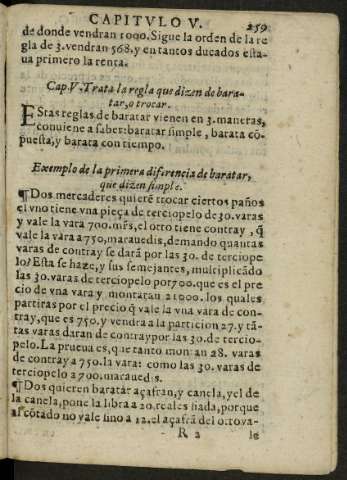 CAPITVLO V. 259
de donde vendran 1000. Sigue la orden de la re
gla de 3. vendran 568. y en tantos ducados esta-
ua primero la renta.
Cap. V. Trata la regla que dizen de bara-
tar, o trocar.
EStas reglas de baratar vienen en 3. maneras,
conuiene a saber: baratar simple, barata cō-
puesta, y barata con tiempo.
Exemplo de la primera diferencia de baratar,
que dizen simple.
¶Dos mercaderes quierē trocar ciertos paños
el vno tiene vna pieça de terciopelo de 30. varas
y vale la vara 700. mrs, el otro tiene contray, q̃
vale la vara a 750, marauedis, demando quantas
varas de contray se dará por las 30. de terciope
lo? Esta se haze, y sus semejantes, multiplicādo
las 30. varas de terciopelo por 700. que es el pre
cio de vna vara y montarau 21000. los quales
partiras por el precio q̃ vale la vna vara de con-
tray, que es 750. y vendra a la particion 27. y tā-
tas varas daran de contray por las 30. de tercio-
pelo. La prueua es, que tanto montan 28. varas
de contray a 750. la vara: como las 30. varas de
terciopelo a 700. marauedis.
¶Dos quieren baratar açafran, y canela, y el de
la canela, pone la libra a 20. reales fiada, porque
al cōtado no vale sino a 12. el açafrā del otro va-
R 2 le